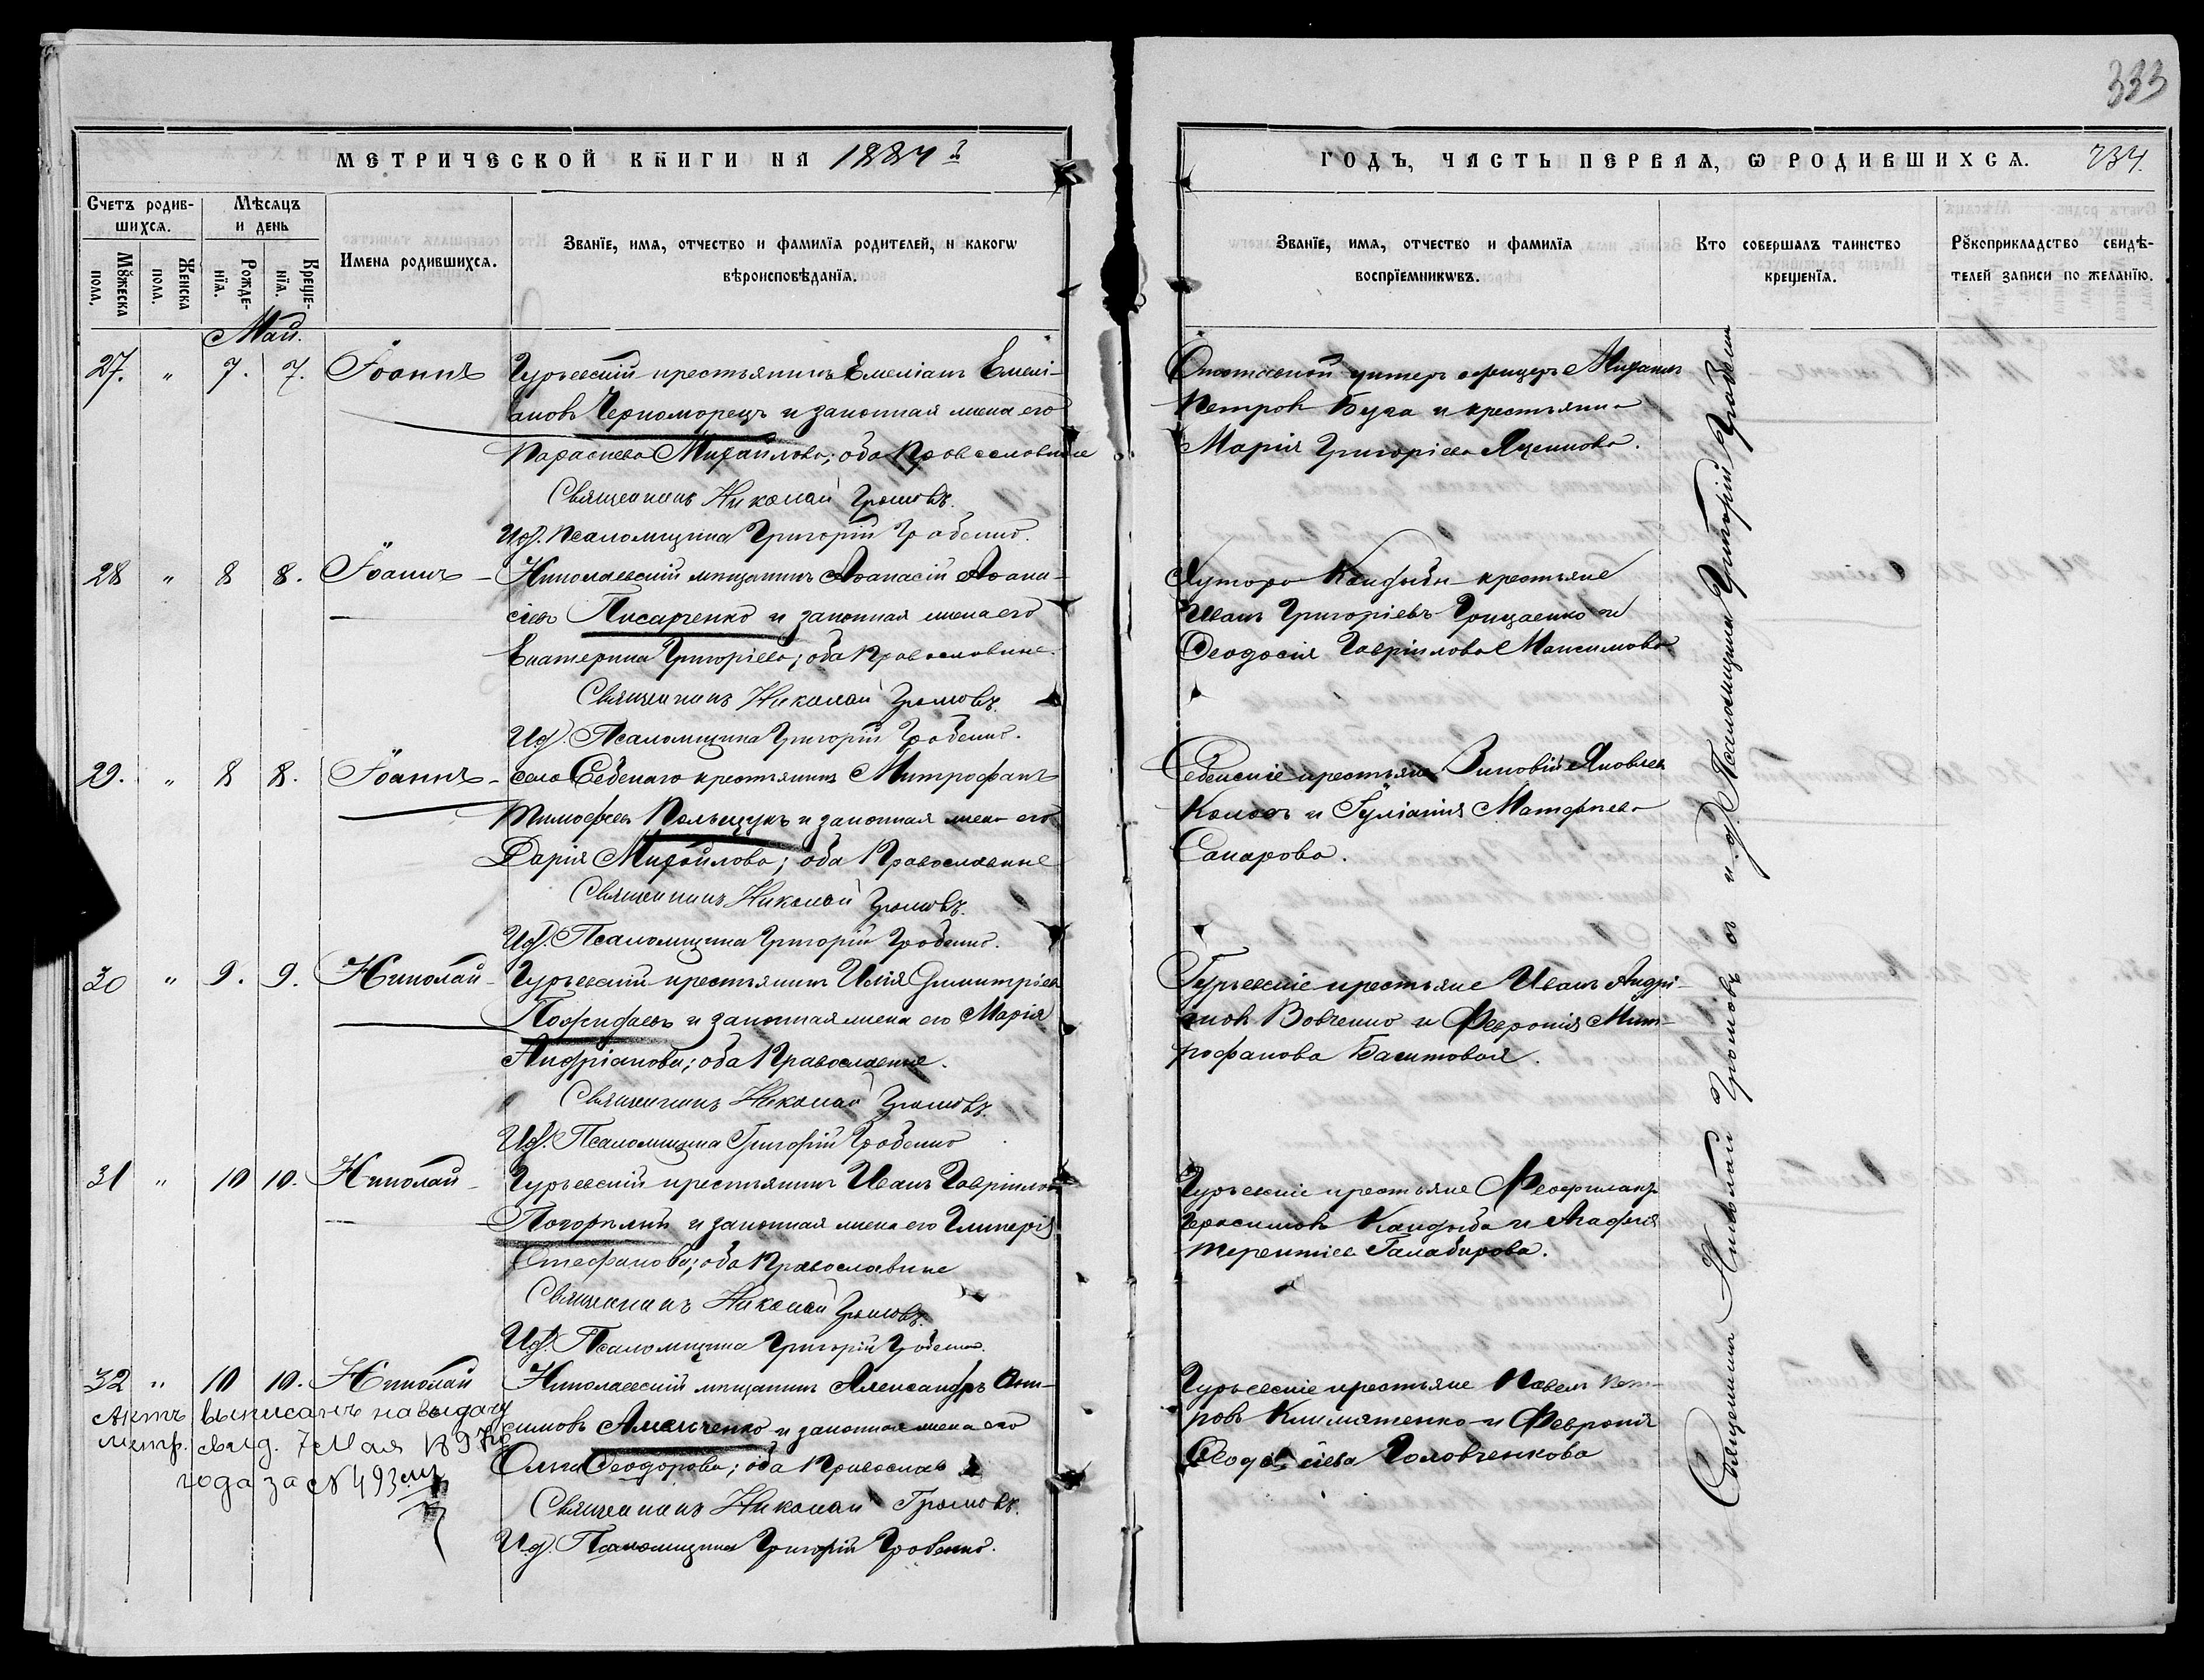 333
МЕТРИЧЕСКОЙ КНИГИ НА 1884 г.
ГОДЪ, ЧАСТЬ ПЕРВАЯ, Ѡ РОДИВШИХСЯ. 234.
Счетъ родив-
шихся.
Мѣсяцъ
и день
Мꙋжеска
пола.
Женска
пола.
Рожде-
нїя.
Креще-
нїя.
Имена родившихся.
Званїе, имя, отчество и фамилїя родителей, и какогѡ
вѣроисповѣданїя.
Званїе, имя, отчество и фамилїя
воспрїемникѡвъ.
Кто совершалъ таинство
крещенїя.
Рꙋкоприкладство свидѣ-
телей записи по желанїю.
Май.
27. " 7. 7. Іоаннъ Гурьевскій крестьянинъ Емеліанъ Емелі-
ановъ Черноморецъ и законная жена его
Параскева Михайлова; оба Православные
Священникъ Николай Громовъ.
И.д. Псаломщика Григорій Гробенко.
Отставной унтеръ офицеръ Михаилъ
Петровъ Буга и крестьянка
Марія Григоріева Яценкова.
28 " 8 8. Іоаннъ Николаевскій мѣщанинъ Аѳанасій Аѳана-
сіевъ Писарченко и законная жена его
Екатерина Григоріева; оба Православные.
Священникъ Николай Громовъ.
И.д. Псаломщика Григорій Гробенко.
Хутора Кандыбы крестьяне
Иванъ Григоріевъ Грицаенко и
Ѳеодосія Гавріилова Максимова
29. " 8 8. Іоаннъ села Себенаго крестьянинъ Митрофанъ
Тимофеевъ Польщукъ и законная жена его
Дарія Михайлова; оба Православные
Священникъ Николай Громовъ.
И.д. Псаломщика Григорій Гробенко.
Себенскіе крестьяне Зиновій Яковлевъ
и Іуліанія Матфѣева
30 " 9. 9. Николай Гурьевскій крестьянинъ Илія Димитріевъ
и законная жена его Марія
Андріанова; оба Православные.
Священникъ Николай Громовъ.
И.д. Псаломщика Григорій Гробенко
Гурьевскіе крестьяне Иванъ Андрі-
ановъ Вовченко и Февронія Мит-
рофанова Баштовая.
31 " 10 10. Николай Гурьевскій крестьянинъ Иванъ Гавріиловъ
Погорѣлый и законная жена его Гликерія
Стефанова; оба Православные
Священникъ Николай Громовъ.
И.д. Псаломщика Григорій Гробенко.
Гурьевскіе крестьяне
Герасимовъ Кандыба и Агафія
Терентіева Галабирова.
32 " 10 10. Николай Николаевскій мѣщанинъ Александръ Они-
симовъ Амельченко и законная жена его
Ольга Ѳеодорова; оба Православ
Священникъ Николай Громовъ.
И.д. Псаломщика Григорій Гробенко.
Гурьевскіе крестьяне Павелъ Пет-
ровъ Климатенко и Февронія
Головченкова
Актъ выписанъ на выдачу
метр. свид. 7 Мая 1897
года за № 493
Священникъ Николай Громовъ съ и.д. Псаломщика Григорій Гробенко